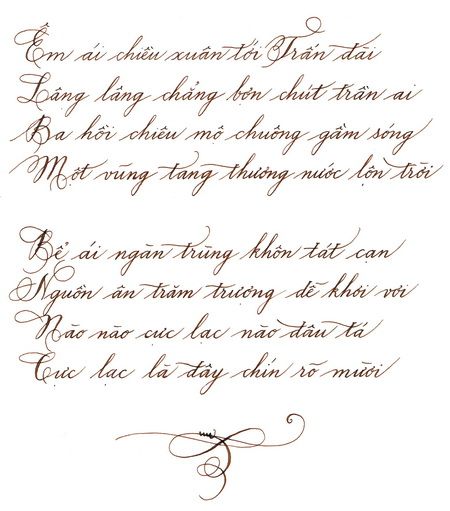 Êm ái chiều xuân tới Trấn đài
Lâng lâng chẳng bợn chút trần ai
Ba hồi chiêu mộ chuông gầm sóng
Một vũng tang thương nước lộn trời
Bể ái ngàn trùng khôn tát cạn
Nguồn ân trăm trượng dễ khơi vơi
Nào nào cực lạc nào đâu tá
Cực lạc là đây chín rõ mười